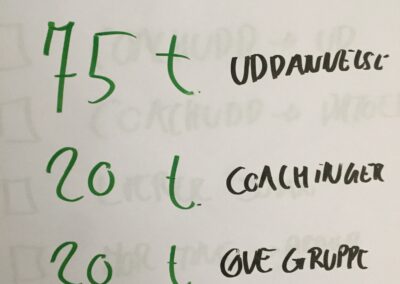 75 t. UDDANNELSE
20 t. COACHINGER
20 t ØVE GRUPPE